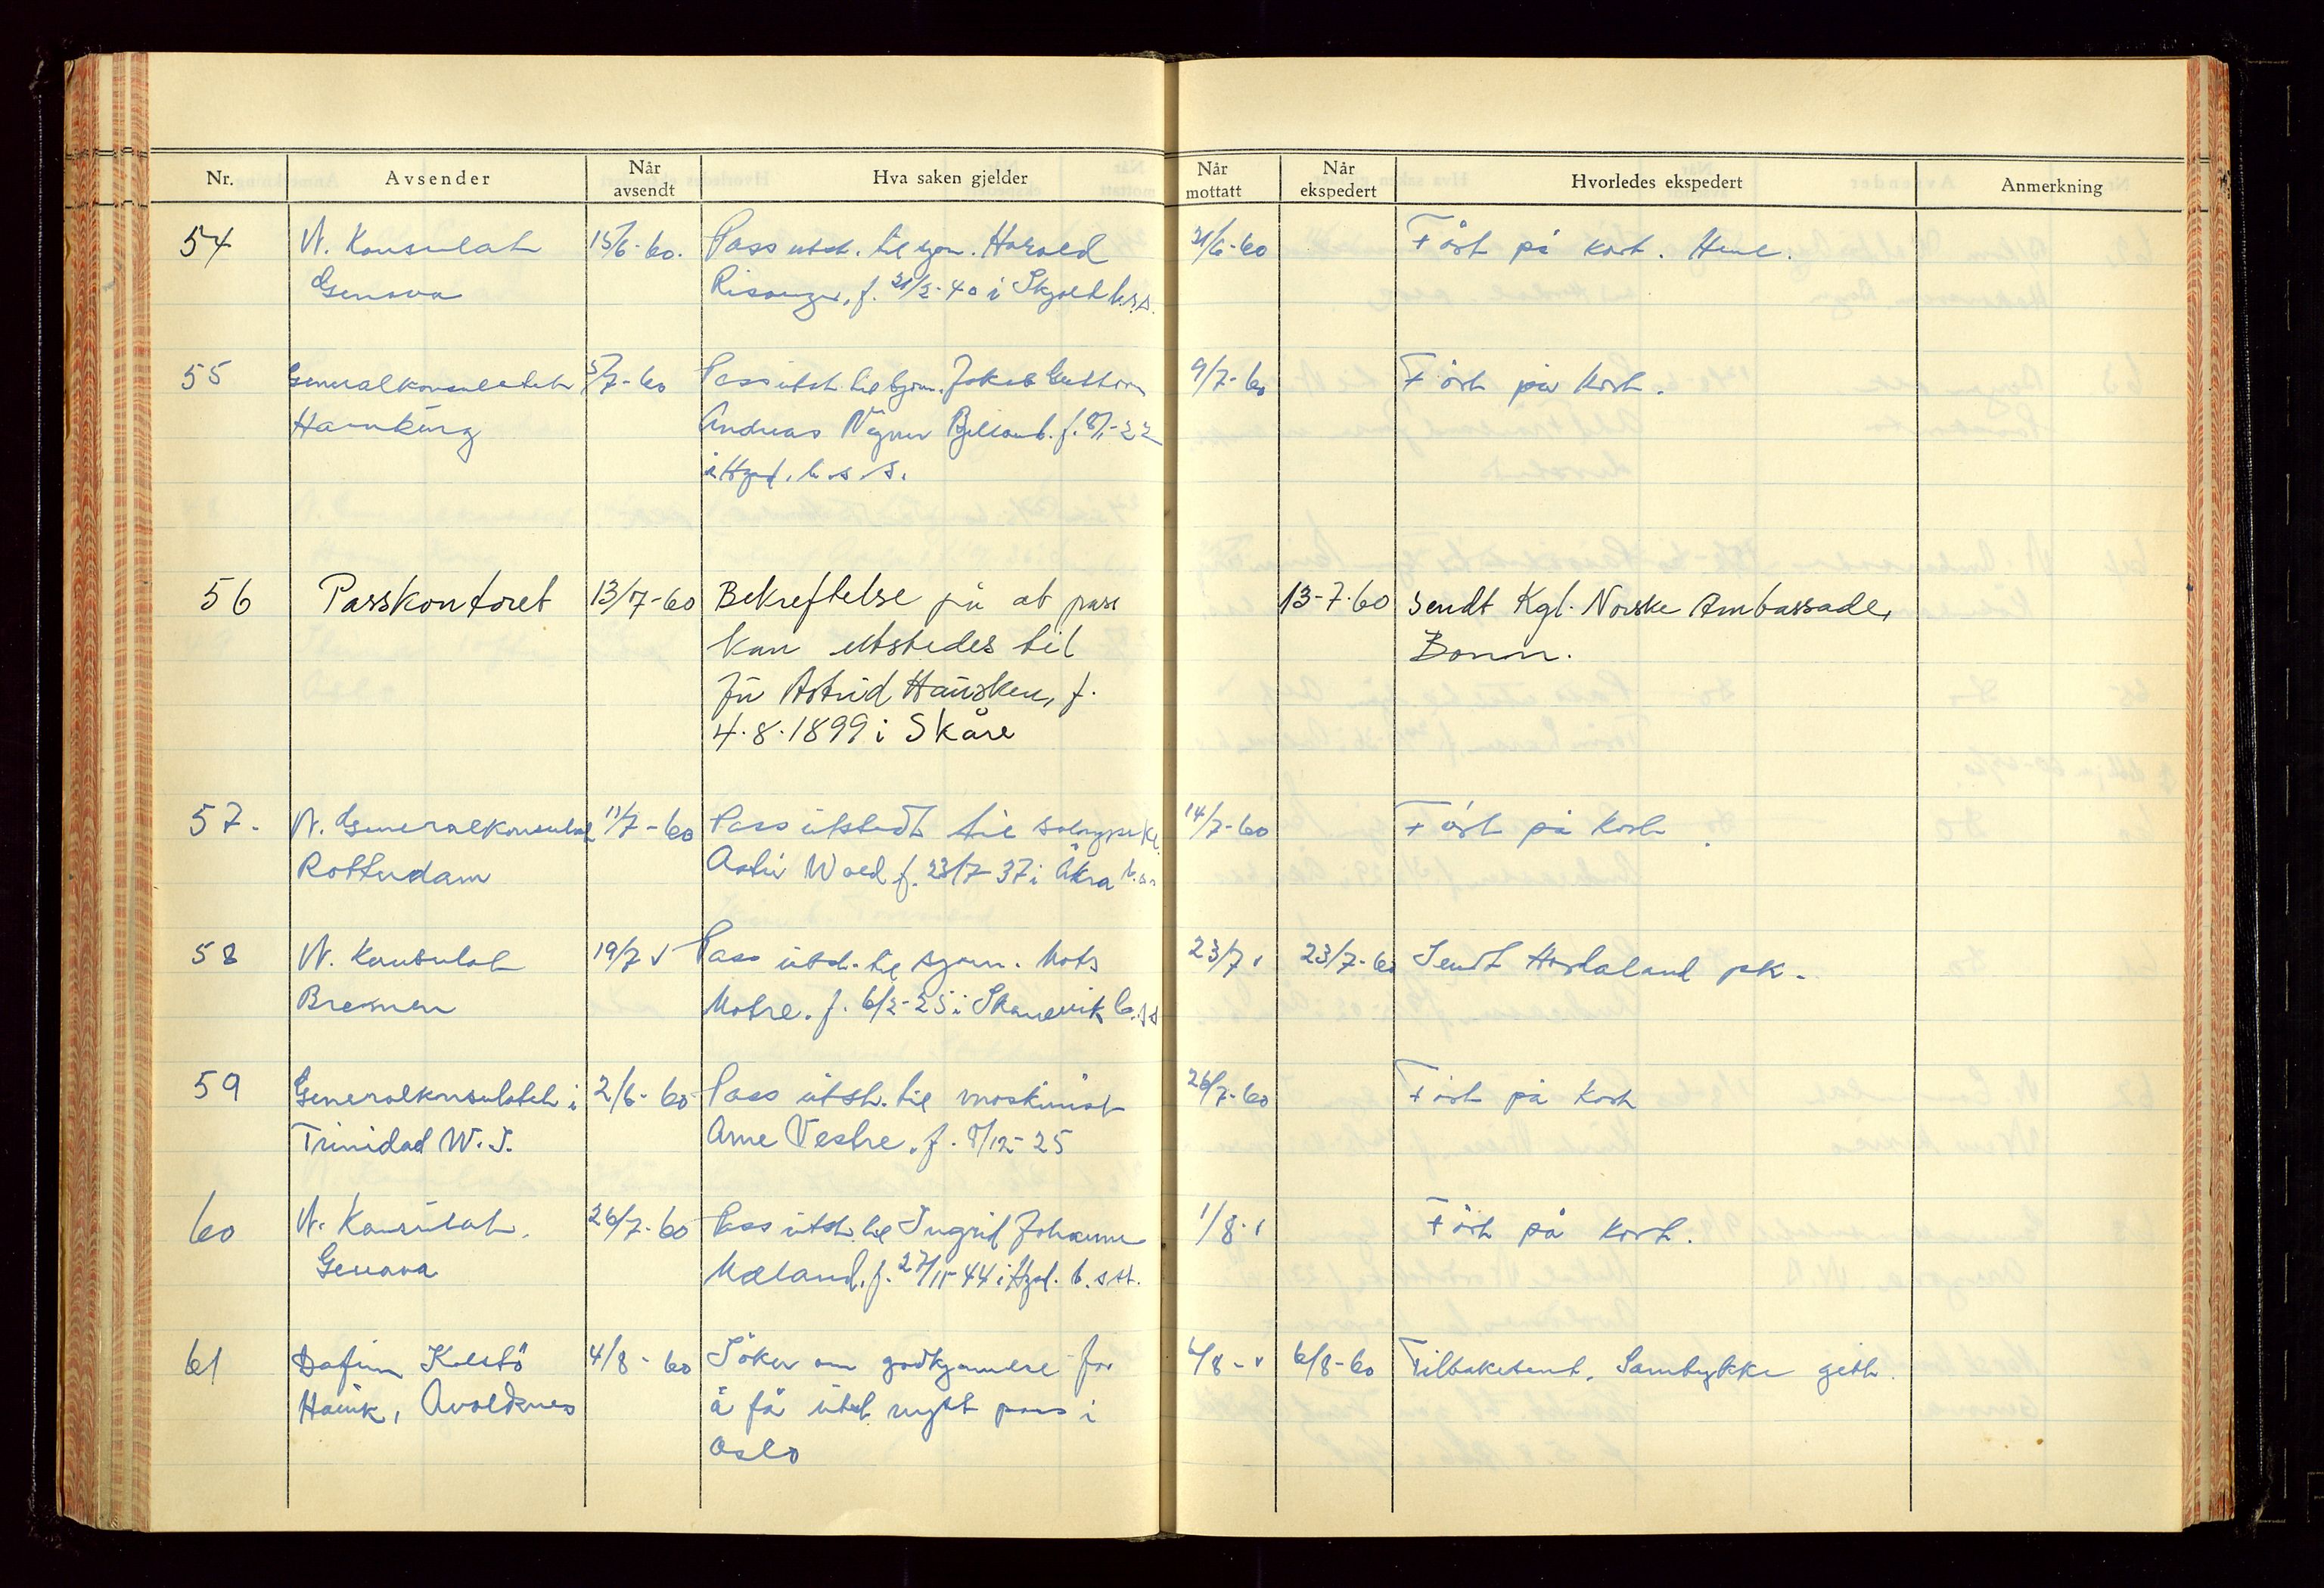 Nr. Avsender Når avsendt Hva saken gjelder Når mottatt Når ekspedert Hvorledes ekspedert Anmerkning
54 N. Konsulat 15/6-60. Pass utst. til sjøm. Harald 21/6-60 Ført på kort.
Genova f. 21/2-40 i Skjold b.s.s.
55 Generalkonsulatet 5/7-60 Pass utst. til sjøm. Jakob 9/7-60 Ført på kort.
Hamburg Andreas f. 8/1-22
i Hgsd. b.s.s.
56 Passkontoret 13/7-60 Bekreftelse på at pass 13-7-60 Sendt Kgl. Norske Ambassade,
kan utstedes til Bonn.
fru Astrid Hausken, f.
4.8.1899 i Skåre
57. N. Generalkonsulat 11/7-60 Pass utstedt til 14/7-60 Ført på kort.
Rotterdam f. 23/7-37 i Åkra b.s.s
58 N. Konsulat 19/7 Pass utst. til sjøm. Mats 23/7 23/7-60 Sendt Hordaland pk.
Bremen Matre. f. 6/2-25 i Skånevik b.s.s
59 Generalkonsulatet i 2/6-60 Pass utst. til maskinist 26/7-60 Ført på kort
Trinidad W.I. Arne Vestre. f. 8/12-25
60 N. Konsulat. 26/7-60 Pass utst. til Ingrid Johanne 1/8 Ført på kort.
Genova Mæland. f. 27/11-44 i Hgsd. b.s.st.
61 Dafinn Kolstø 4/8-60 Søker om godkjennelse for 6/8- 6/8-60 Tilbakesent. Samtykke gitt.
Håvik, Avaldsnes å få utst. nytt pass i
Oslo